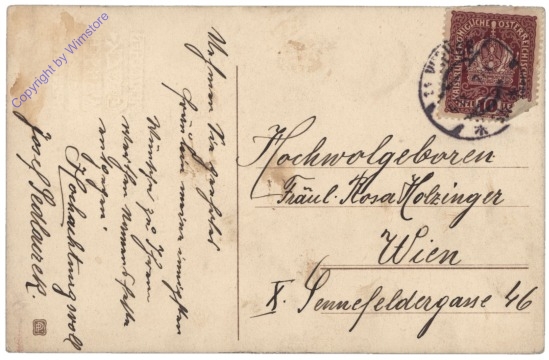 Nehmen Sie geehrtes
Fräulein meine innigsten
Wünsche zu Ihrem
werthen Namensfeste
entgegen!
Hochachtungsvoll
Josef Sedlaczek.
Hochwolgeboren
Fräul. Rosa Holzinger
Wien
X. Sennefeldergasse 46
KAIS. KÖNIGLICHE ÖSTERREICHISCHE
10
Copyright by Wimstore